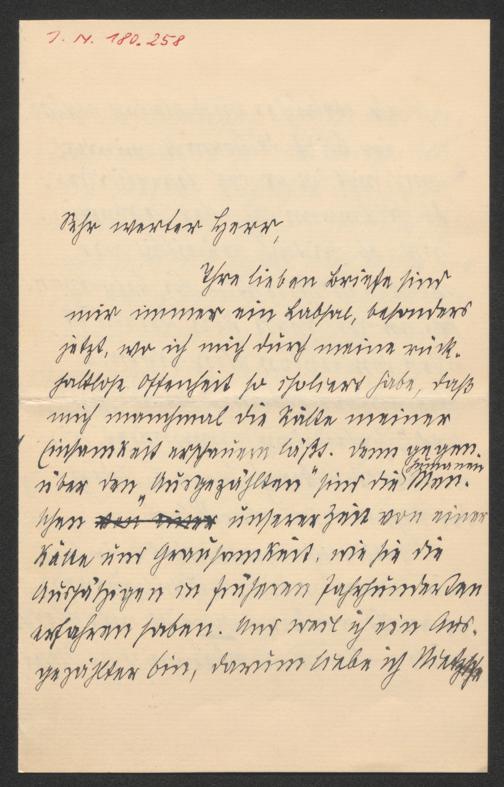 I. N. 180.258
Sehr werter Herr,
Ihre lieben Briefe sind
mir immer ein Labsal, besonders
jetzt, wo ich mich durch meine rück-
haltlose Offenheit so isoliert habe, daß
mich manchmal die Kälte meiner
Einsamkeit erschauern läßt. Denn gegen-
humanen
über den „Ausgezählten“ sind die Men-
schen von einer unserer Zeit von einer
Kälte und Grausamkeit, wie sie die
Aussätzigen in früheren Jahrhunderten
erfahren haben. Und weil ich ein Aus-
gezählter bin, darum liebe ich Nietzsche